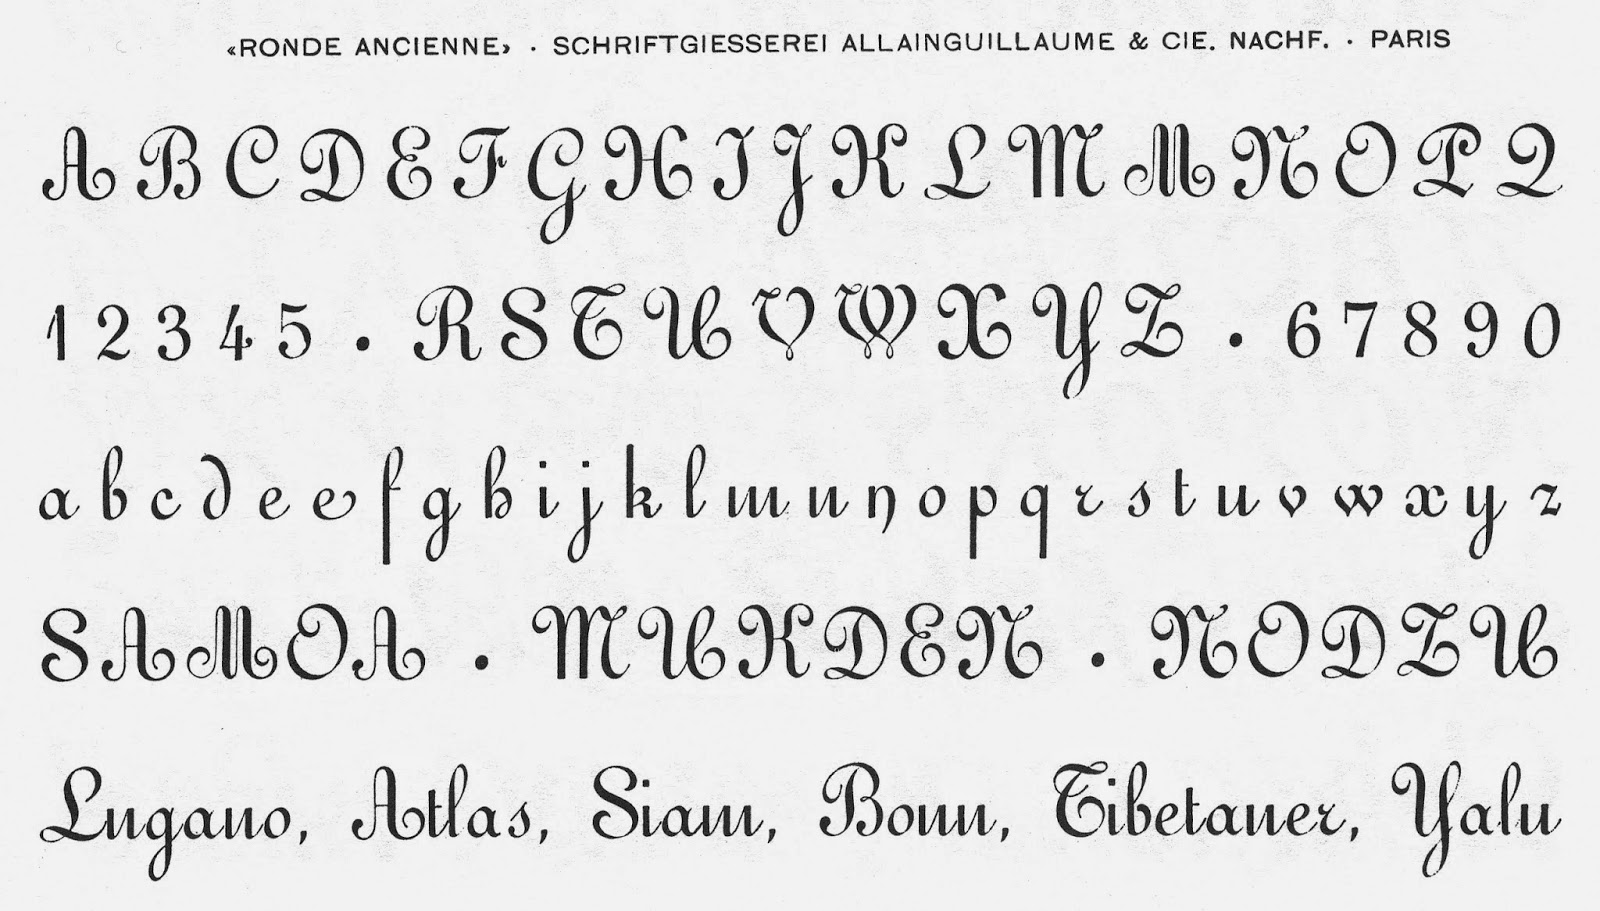 «RONDE ANCIENNE» · SCHRIFTGIESSEREI ALLAINGUILLAUME & CIE. NACHF. · PARIS
A B C D E F G H I J K L M M N O P Q
1 2 3 4 5 · R S T U V W X Y Z · 6 7 8 9 0
a b c d e e f g h i j k l m n n o p q r s t u v w x y z
SAMOA · MUKDEN · NODZU
Lugano, Atlas, Siam, Bonn, Tibetaner, Yalu